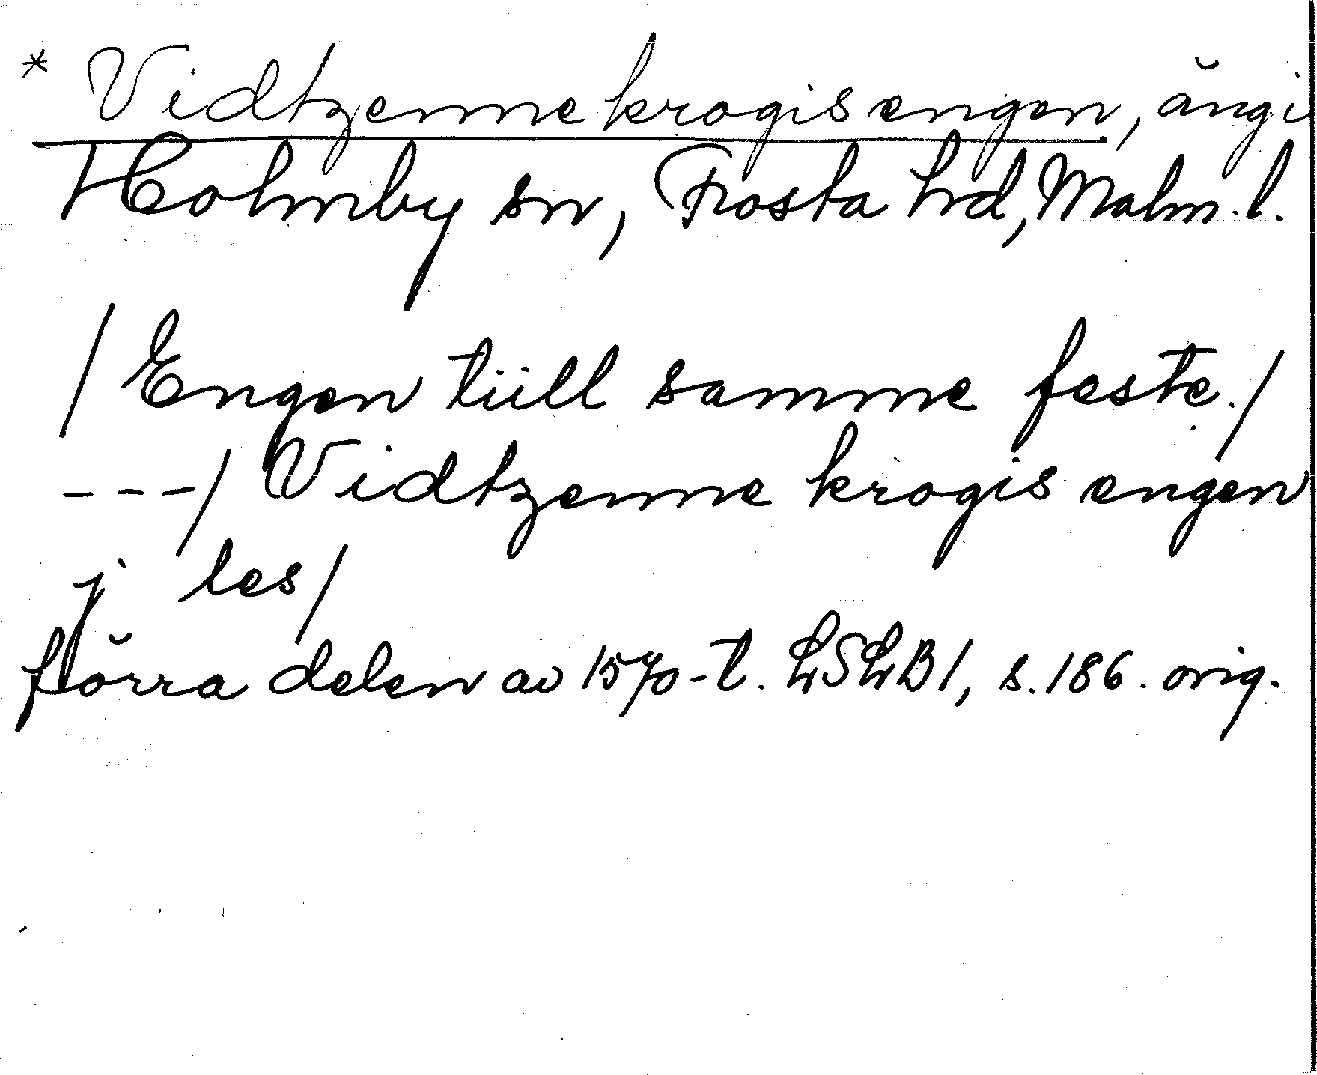 * Vidtzenne krogis engen, äng i
Holmby sn, Frosta hd, Malm. l.
/ Engen tiill samme feste. /
---/ Vidtzenne krogis engen
j les /
förra delen av 1570-t. LSLB1, s. 186. orig.